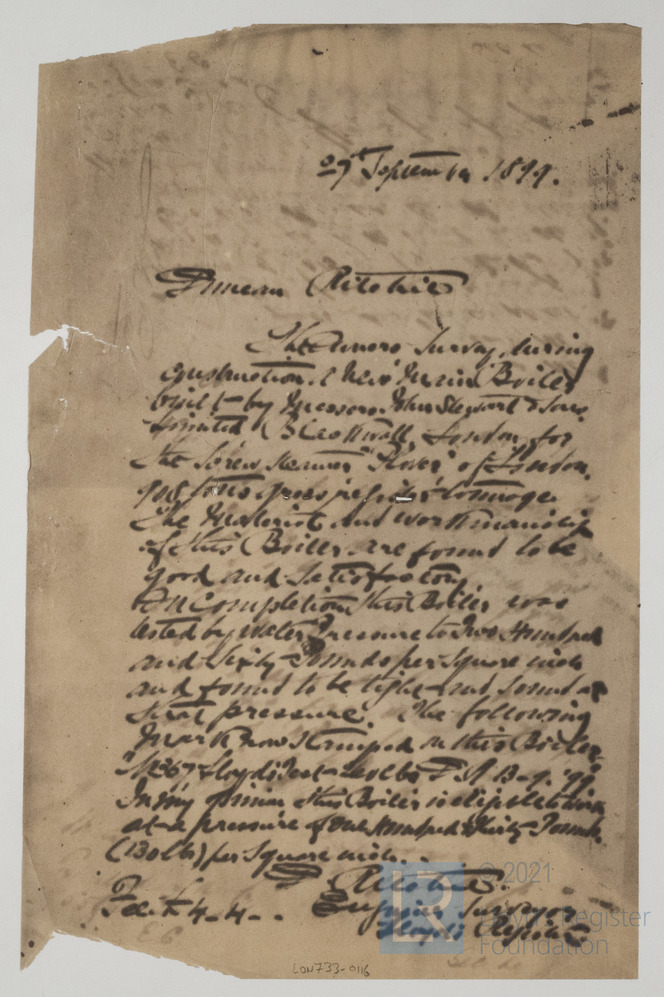 27th September 1899.
Duncan Ritchie
Has
 Survey during
construction. 1 New Main Boiler
built by Messrs. John Stewart & Son
Limited Blackwall, London, for
the Screw Steamer "Plover" of London,
tons gross register tonnage.
The Materials and workmanship
of this Boiler are found to be
good and satisfactory.
On completion this Boiler was
tested by water Pressure to Two Hundred
and Sixty Pounds per square inch
and found to be tight and sound at
that pressure. The following
Mark now stamped on this Boiler
No 367 Lloyds Test 260 lbs D.R. 99
In my opinion this Boiler is
at a pressure of One Hundred & Thirty Pounds
(130 lbs) per square inch.
D Ritchie.
Fee £ 4-4-.
Engineer Surveyor
Lloyds Register
LR
© 2021
Lloyd's Register
Foundation
LON733-0116